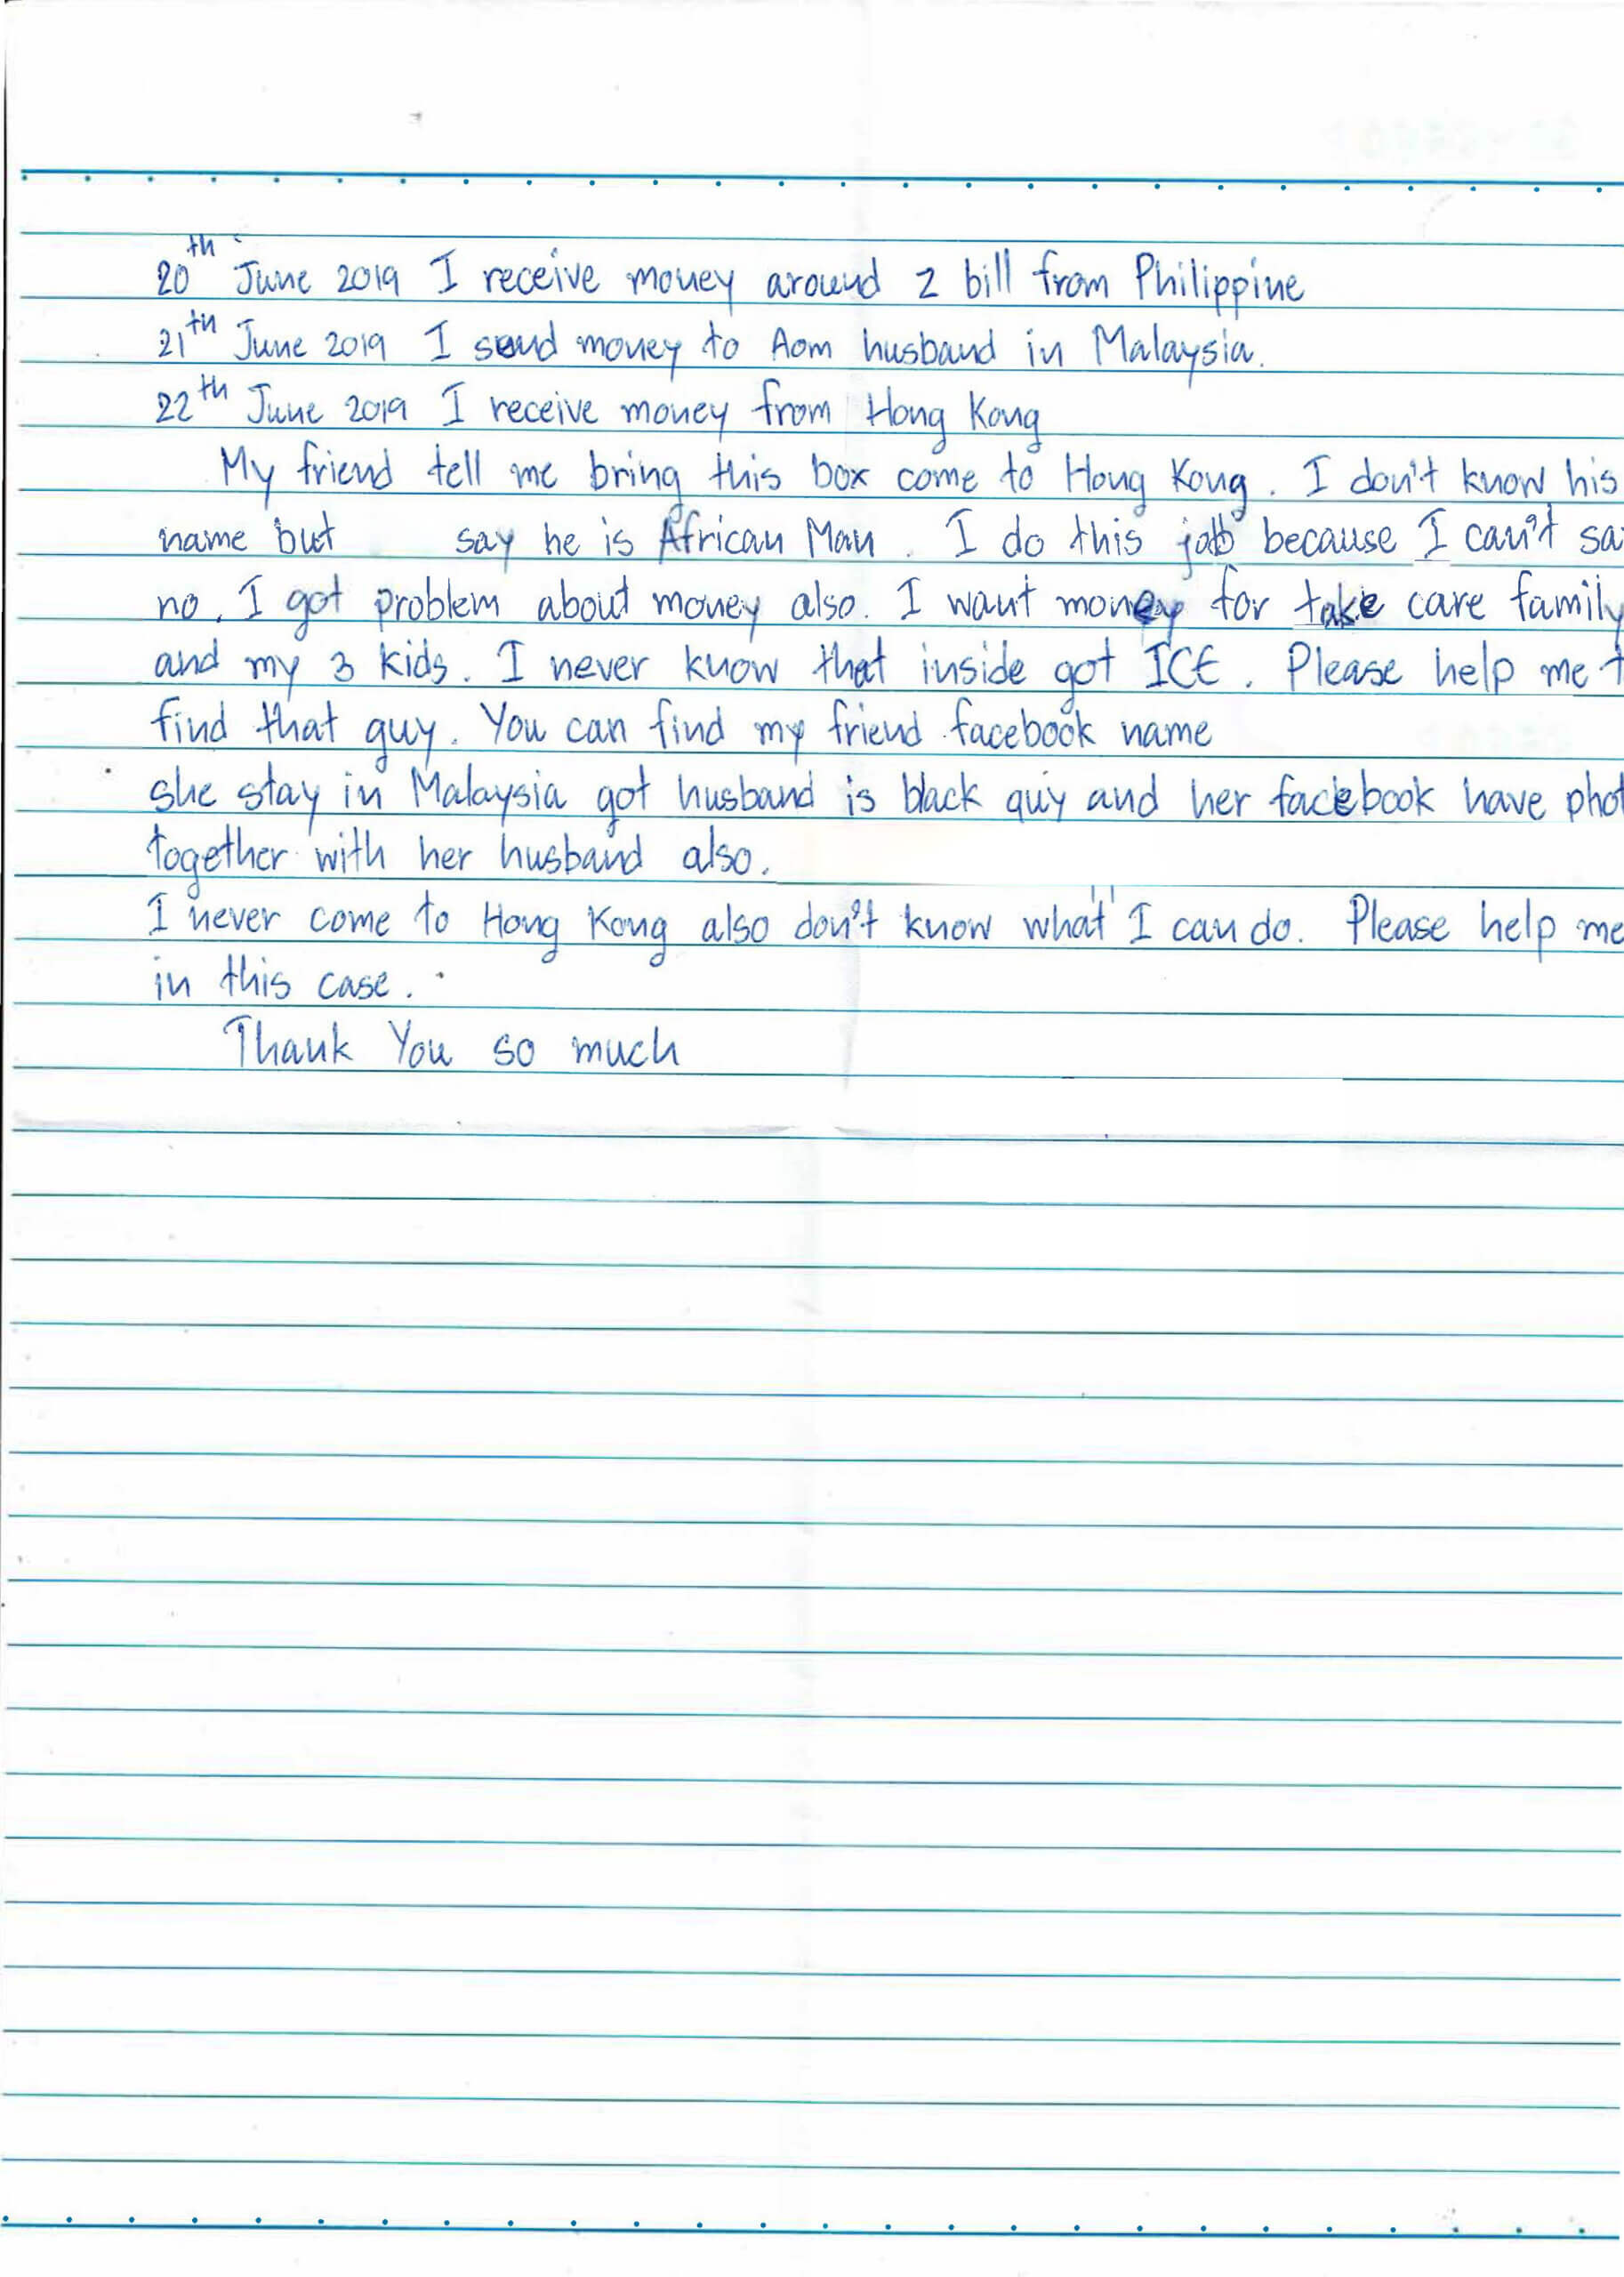 20th June 2019 I receive money around 2 bill from Philippine
21th June 2019 I send money to Aom husband in Malaysia.
22th June 2019 I receive money from Hong Kong
My friend tell me bring this box come to Hong Kong. I don't know his
name but say he is African Man. I do this job because I can't sa
no. I got problem about money also. I want money for take care family
and my 3 kids. I never know that inside got ICE. Please help me t
find that guy. You can find my friend facebook name
she stay in Malaysia got husband is black guy and her facebook have phot
together with her husband also.
I never come to Hong Kong also don't know what I can do. Please help me
in this case.
Thank You so much